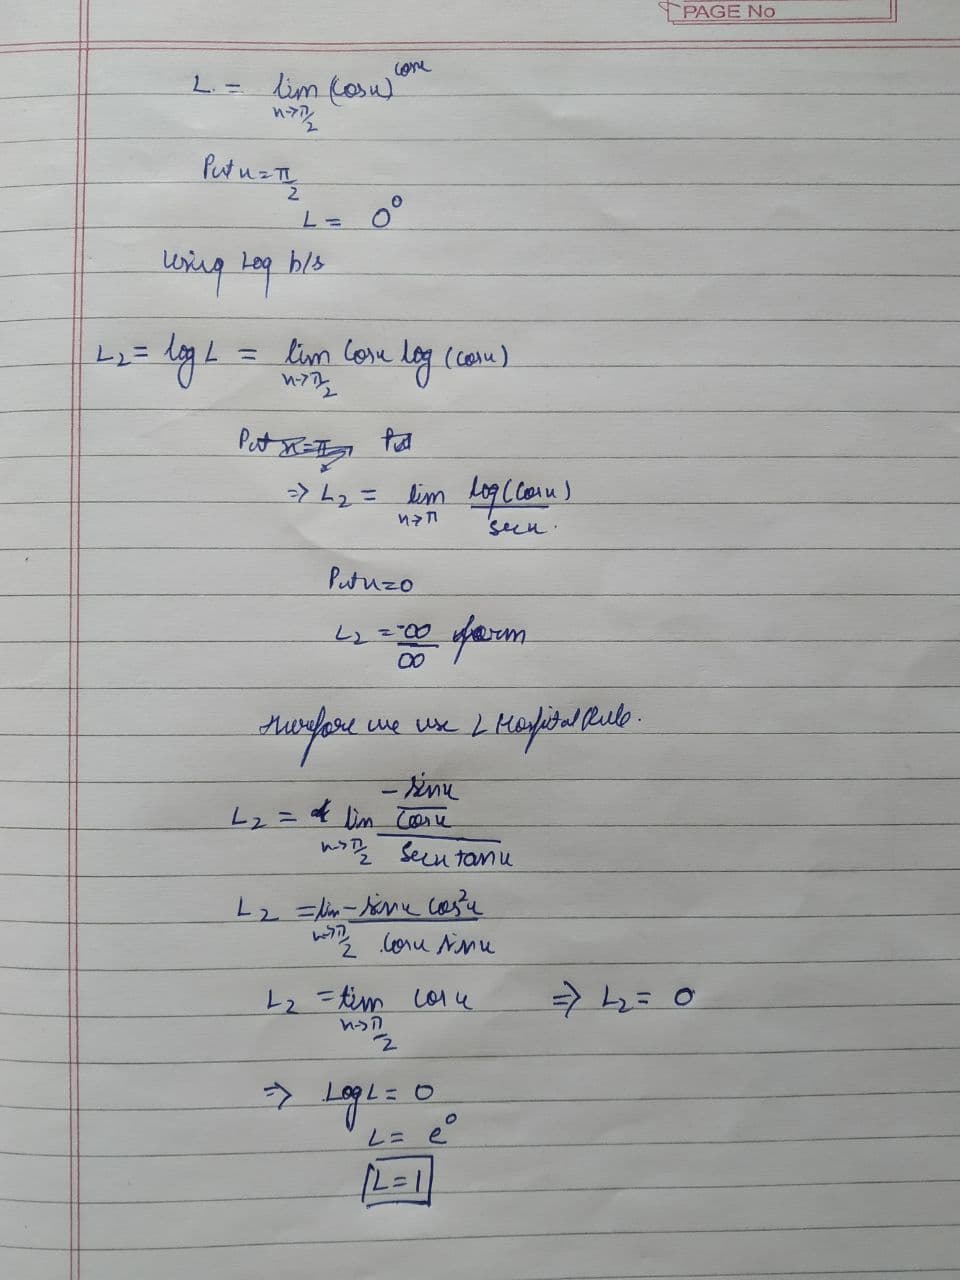 PAGE No
L = lim (cosx)^cosx
x→π/2
Put x = π/2
L = 0^0
Using Log b/s
L2 = log L = lim cosx log (cosx)
x→π/2
Put x=π/2 Put
⇒ L2 = lim log(cosx)
x→π secx.
Put x=0
L2 = -∞/∞ form
therefore we use L Hospital Rule.
L2 = lim -sinx/cosx
x→π/2 secx tanx
L2 = lim -sinx cos²x
x→π/2 cosx sinx
L2 = lim cosx ⇒ L2 = 0
x→π/2
⇒ Log L = 0
L = e^0
L = 1